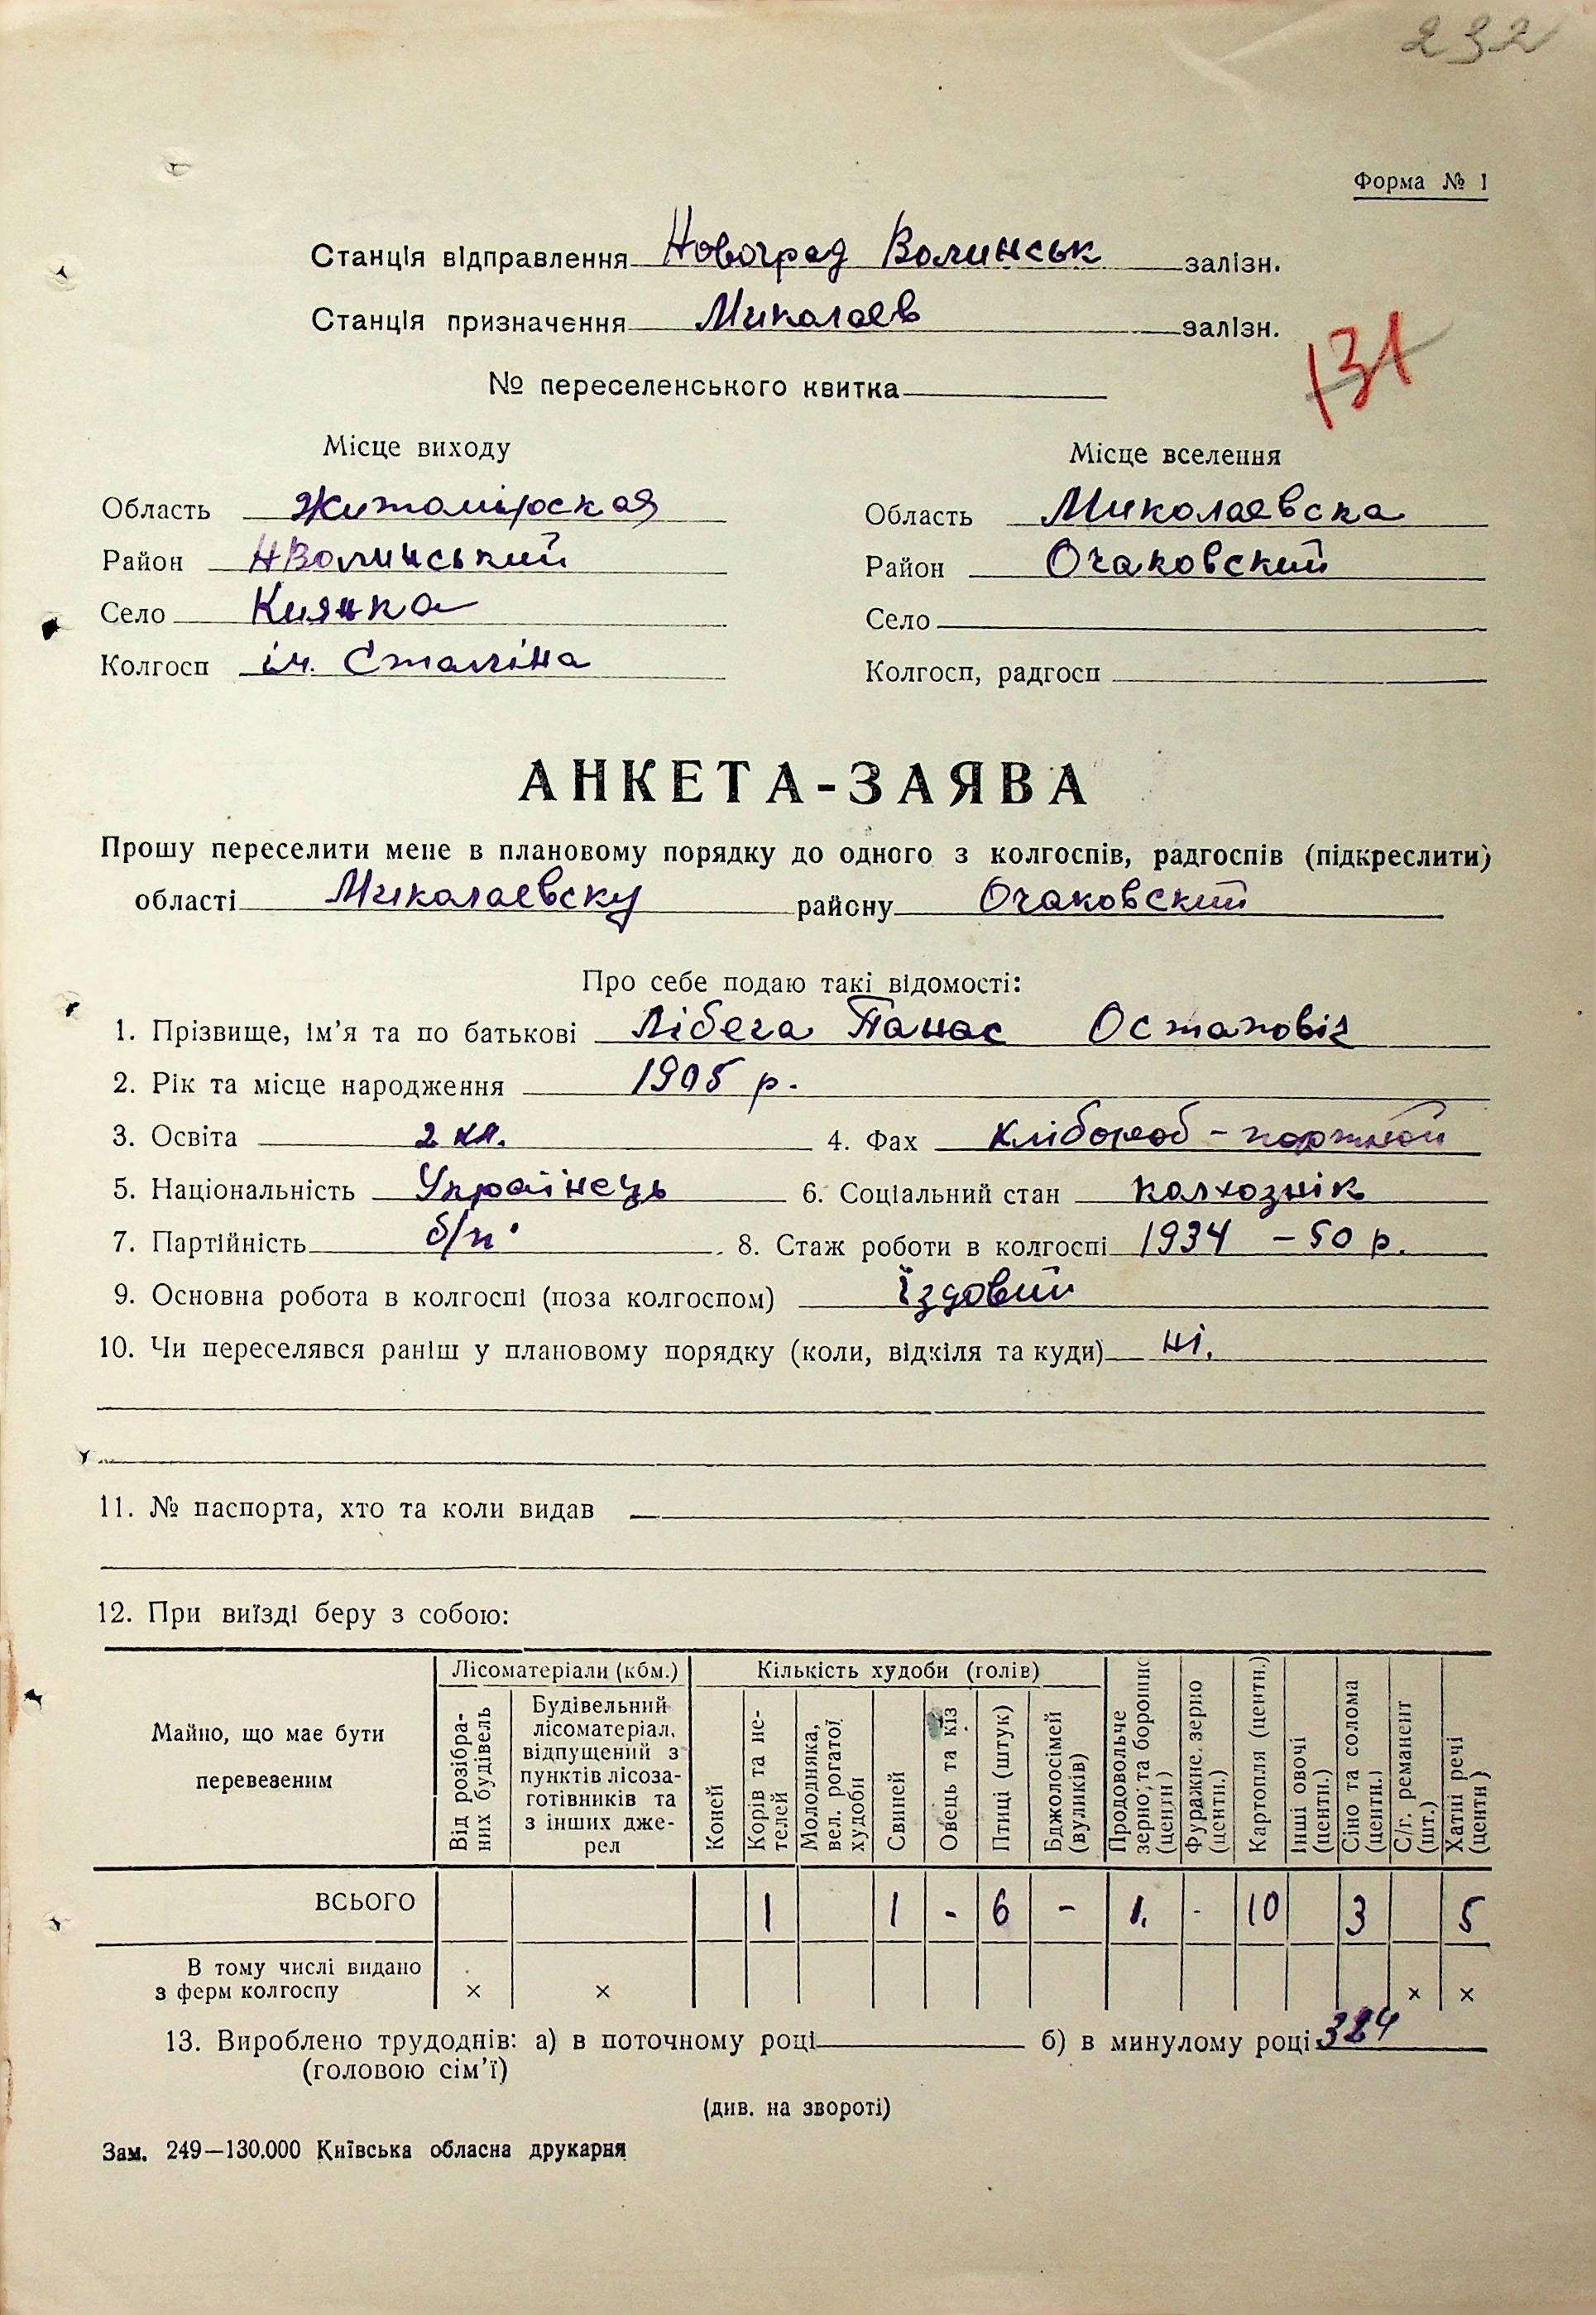 232
Форма № 1
Станція відправлення Новоград Волинськ залізн.
Станція призначення Миколаев залізн.
131
№ переселенського квитка
Місце виходу
Місце вселення
Область Житомірская
Область Миколаевска
Район НВолинський
Район Очаковский
Село Киянка
Село
Колгосп ім. Сталіна
Колгосп, радгосп
АНКЕТА-ЗАЯВА
Прошу переселити мене в плановому порядку до одного з колгоспів, радгоспів (підкреслити)
області Миколаевску району Очаковский
Про себе подаю такі відомості:
1. Прізвище, ім’я та по батькові Лібега Панас Остаповіч
2. Рік та місце народження 1905 р.
3. Освіта 2 кл. 4. Фах хлібороб - портной
5. Національність Українець 6. Соціальний стан колхознік
7. Партійність б/п. 8. Стаж роботи в колгоспі 1934 - 50 р.
9. Основна робота в колгоспі (поза колгоспом) їздовий
10. Чи переселявся раніш у плановому порядку (коли, відкіля та куди) ні.
11. № паспорта, хто та коли видав
12. При виїзді беру з собою:
Майно, що має бути перевезеним
Лісоматеріали (кбм.)
Від розібраних будівель
Будівельний лісоматеріал, відпущений з пунктів лісозаготівників та з інших джерел
Кількість худоби (голів)
Коней
Корів та нетелей
Молодняка, вел. рогатої худоби
Свиней
Овець та кіз
Птиці (штук)
Бджолосімей (вуликів)
Продовольче зерно, та борошно (центн)
Фуражне зерно (центн.)
Картопля (центн.)
Інші овочі (центн.)
Сіно та солома (центн.)
С/г. реманент (шт.)
Хатні речі (центн)
ВСЬОГО 1 1 - 6 - 1. - 10 3 5
В тому числі видано
з ферм колгоспу × × × ×
13. Вироблено трудоднів: а) в поточному році б) в минулому році 324
(головою сім’ї)
(див. на звороті)
Зам. 249—130.000 Київська обласна друкарня